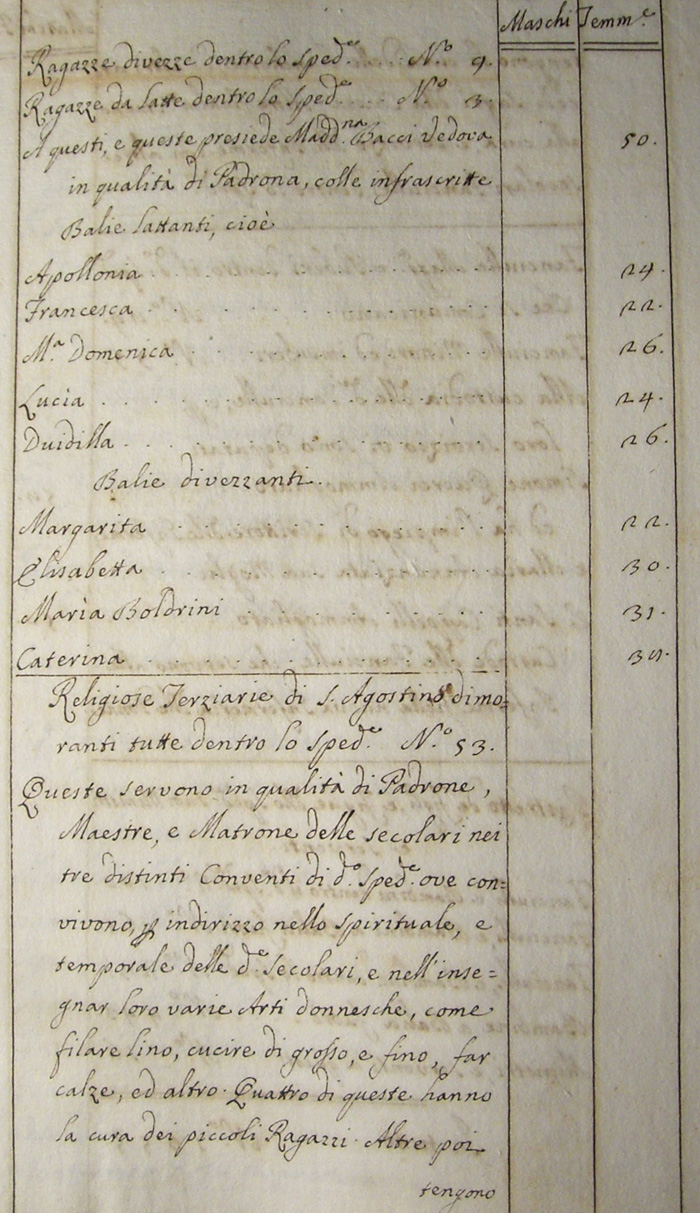 Maschi Femm.e
Ragazze divezze dentro lo Sped.e .... N.o 9.
Ragazze da latte dentro lo Sped.e .... N.o 3.
A questi, e queste presiede Madd.na Bacci Vedova 50.
in qualità di Padrona, colle infrascritte
Balie lattanti, cioè
Apollonia . . . . . . . . 24.
Francesca . . . . . . . . 22.
M.a Domenica . . . . . . . . 26.
Lucia . . . . . . . . 24.
Duidilla . . . . . . . . 26.
Balie divezzanti.
Margarita . . . . . . . . 22.
Elisabetta . . . . . . . . 30.
Maria Boldrini . . . . . . . . 31.
Caterina . . . . . . . .
Religiose Terziarie di S. Agostino dimo=
ranti tutte dentro lo Sped.e N.o 53.
Queste servono in qualità di Padrone,
Maestre, e Matrone delle secolari nei
tre distinti Conventi di d.o Sped.e ove con=
vivono, indirizzo nello spirituale, e
temporale delle d.e Secolari, e nell'inse=
gnar loro varie Arti donnesche, come
filare lino, cucire di grosso, e fino, far
calze, ed altro. Quattro di queste hanno
la cura dei piccoli Ragazzi. Altre poi
tengono